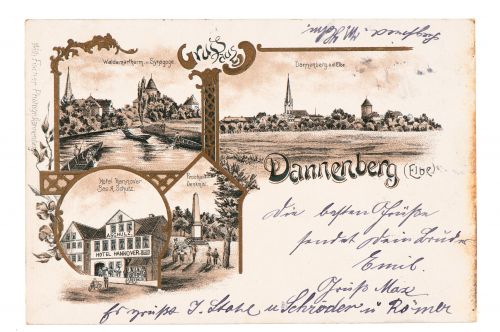 Gruss aus
Waldemarthurm u. Synagoge.
Dannenberg a/d Elbe
Dannenberg (Elbe)
Hotel Hannover
Bes. A. Schulz.
Denkmal.
A. SCHULZ
HOTEL HANNOVER
Die besten Grüße
sendet Dein Bruder
Emil.
Gruß Max
Es grüßt J. Stahl u Schröder u Römer